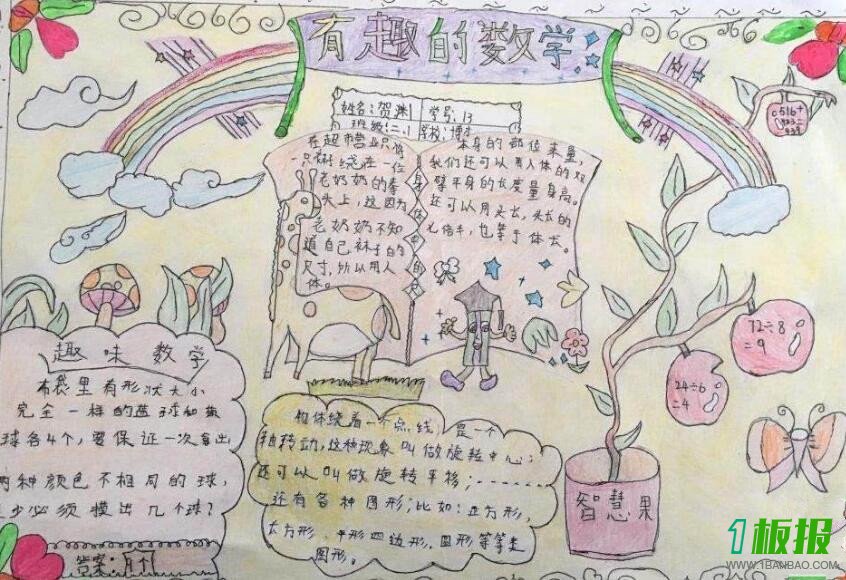 有趣的数学
姓名:贺渊 学号:13
班级:二.1 学校:博才
在超市只将
一只袜绕在一位
老奶奶的拳
头上,这因为
老奶奶不知
道自己袜子的
尺寸,所以用人
体。
身体中的尺
本身的部位来量,
我们还可以用人体的双
臂平身的长度量身高。
还可以用头长,头长的
七倍半,也等于体长。
516+
423=
939
72÷8
=9
24÷6
=4
智慧果
趣味数学
布袋里有形状大小
完全一样的蓝球和黄
球各4个,要保证一次拿出
两种颜色不相同的球,
至少必须摸出几个球?
答案:
物体绕着一个点线,是一个
轴转动,这种现象叫做旋转中心;
还可以叫做旋转平移;……
还有各种图形;比如:正方形,
长方形,平形四边形,圆形等等是
图形。
1板报
WWW.1BANBAO.COM